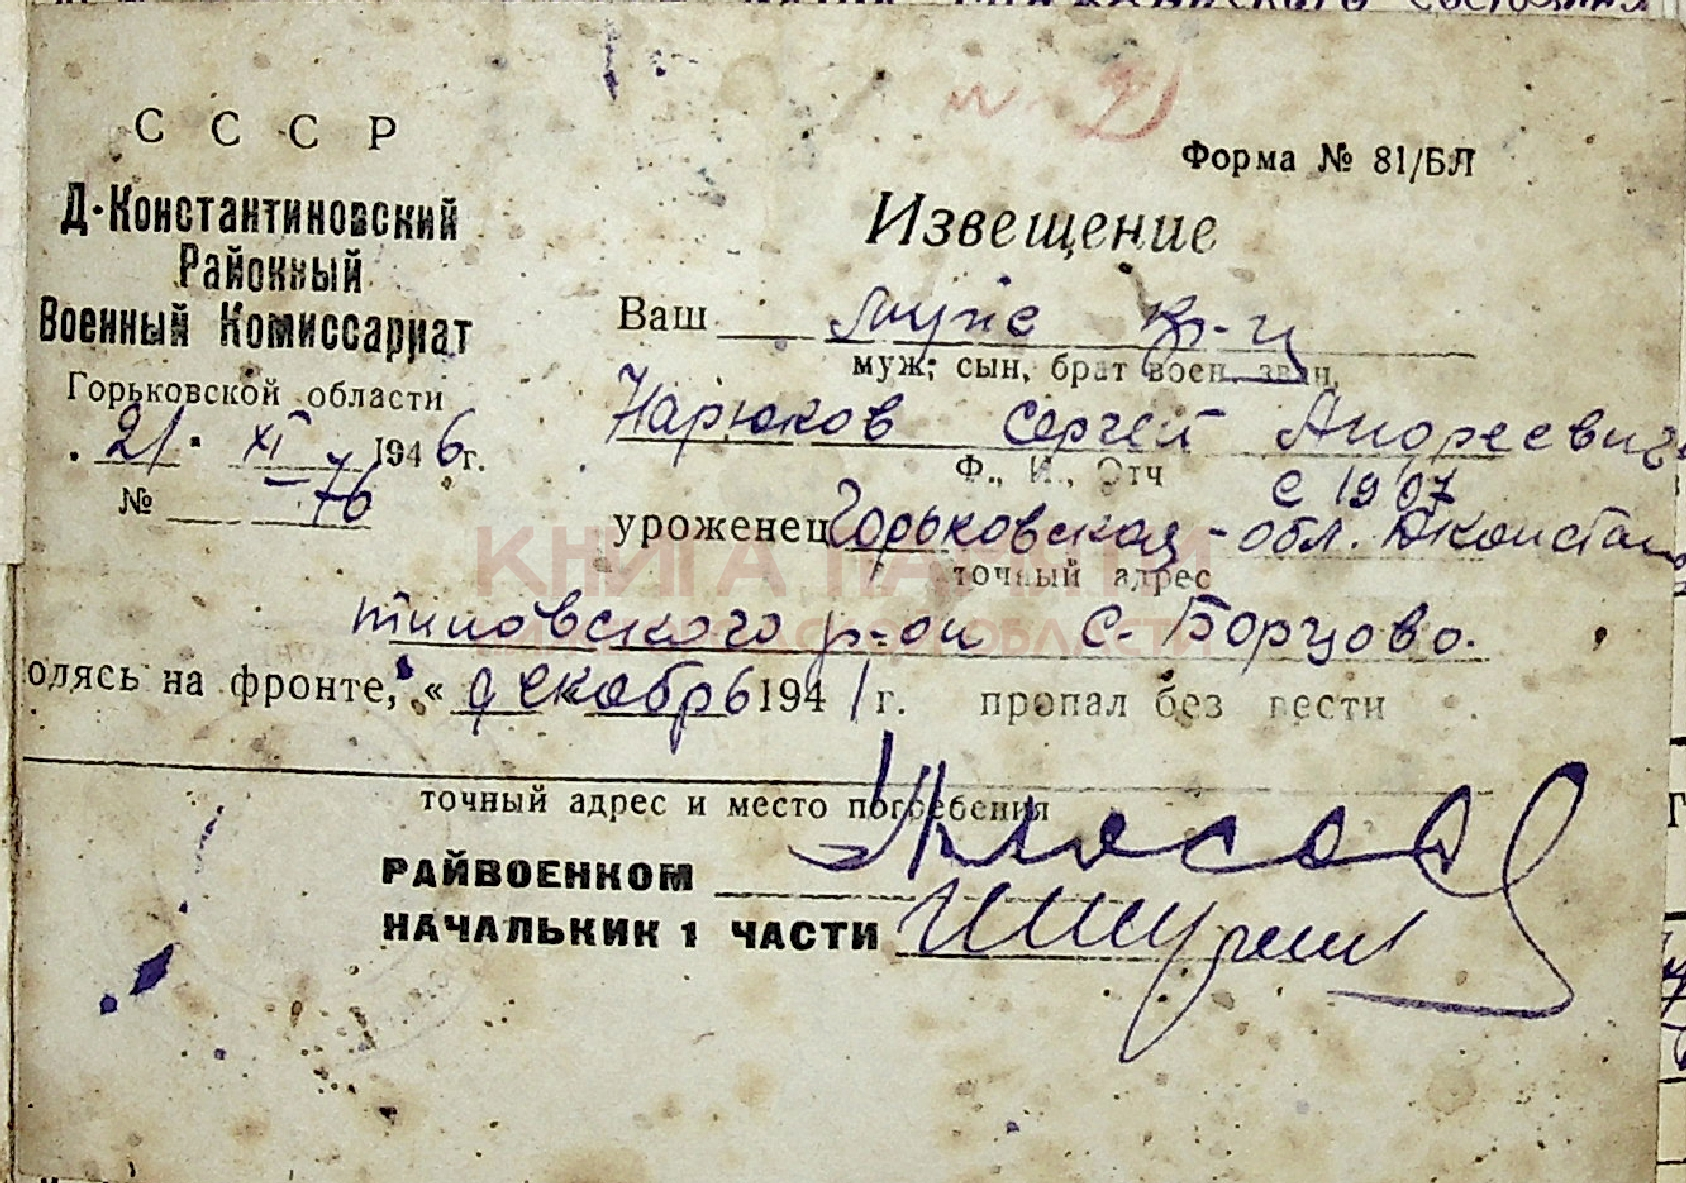 С С С Р
Форма № 81/БЛ
Д-Константиновский
Районный
Военный Комиссариат
Горьковской области
21. XI 1946г.
№ 76
Извещение
Ваш муж кр-ц
муж, сын, брат воен. зван.
Нарюков Сергей Андреевич
Ф., И., Отч
с 1907
уроженец Горьковская-обл. Дконстан
точный адрес
тиновского р-он с. Борцово.
одясь на фронте, « декабрь 1941 г. пропал без вести
точный адрес и место погребения
РАЙВОЕНКОМ
НАЧАЛЬКИК 1 ЧАСТИ
КНИГА ПАМЯТИ
НИЖЕГОРОДСКОЙ ОБЛАСТИ